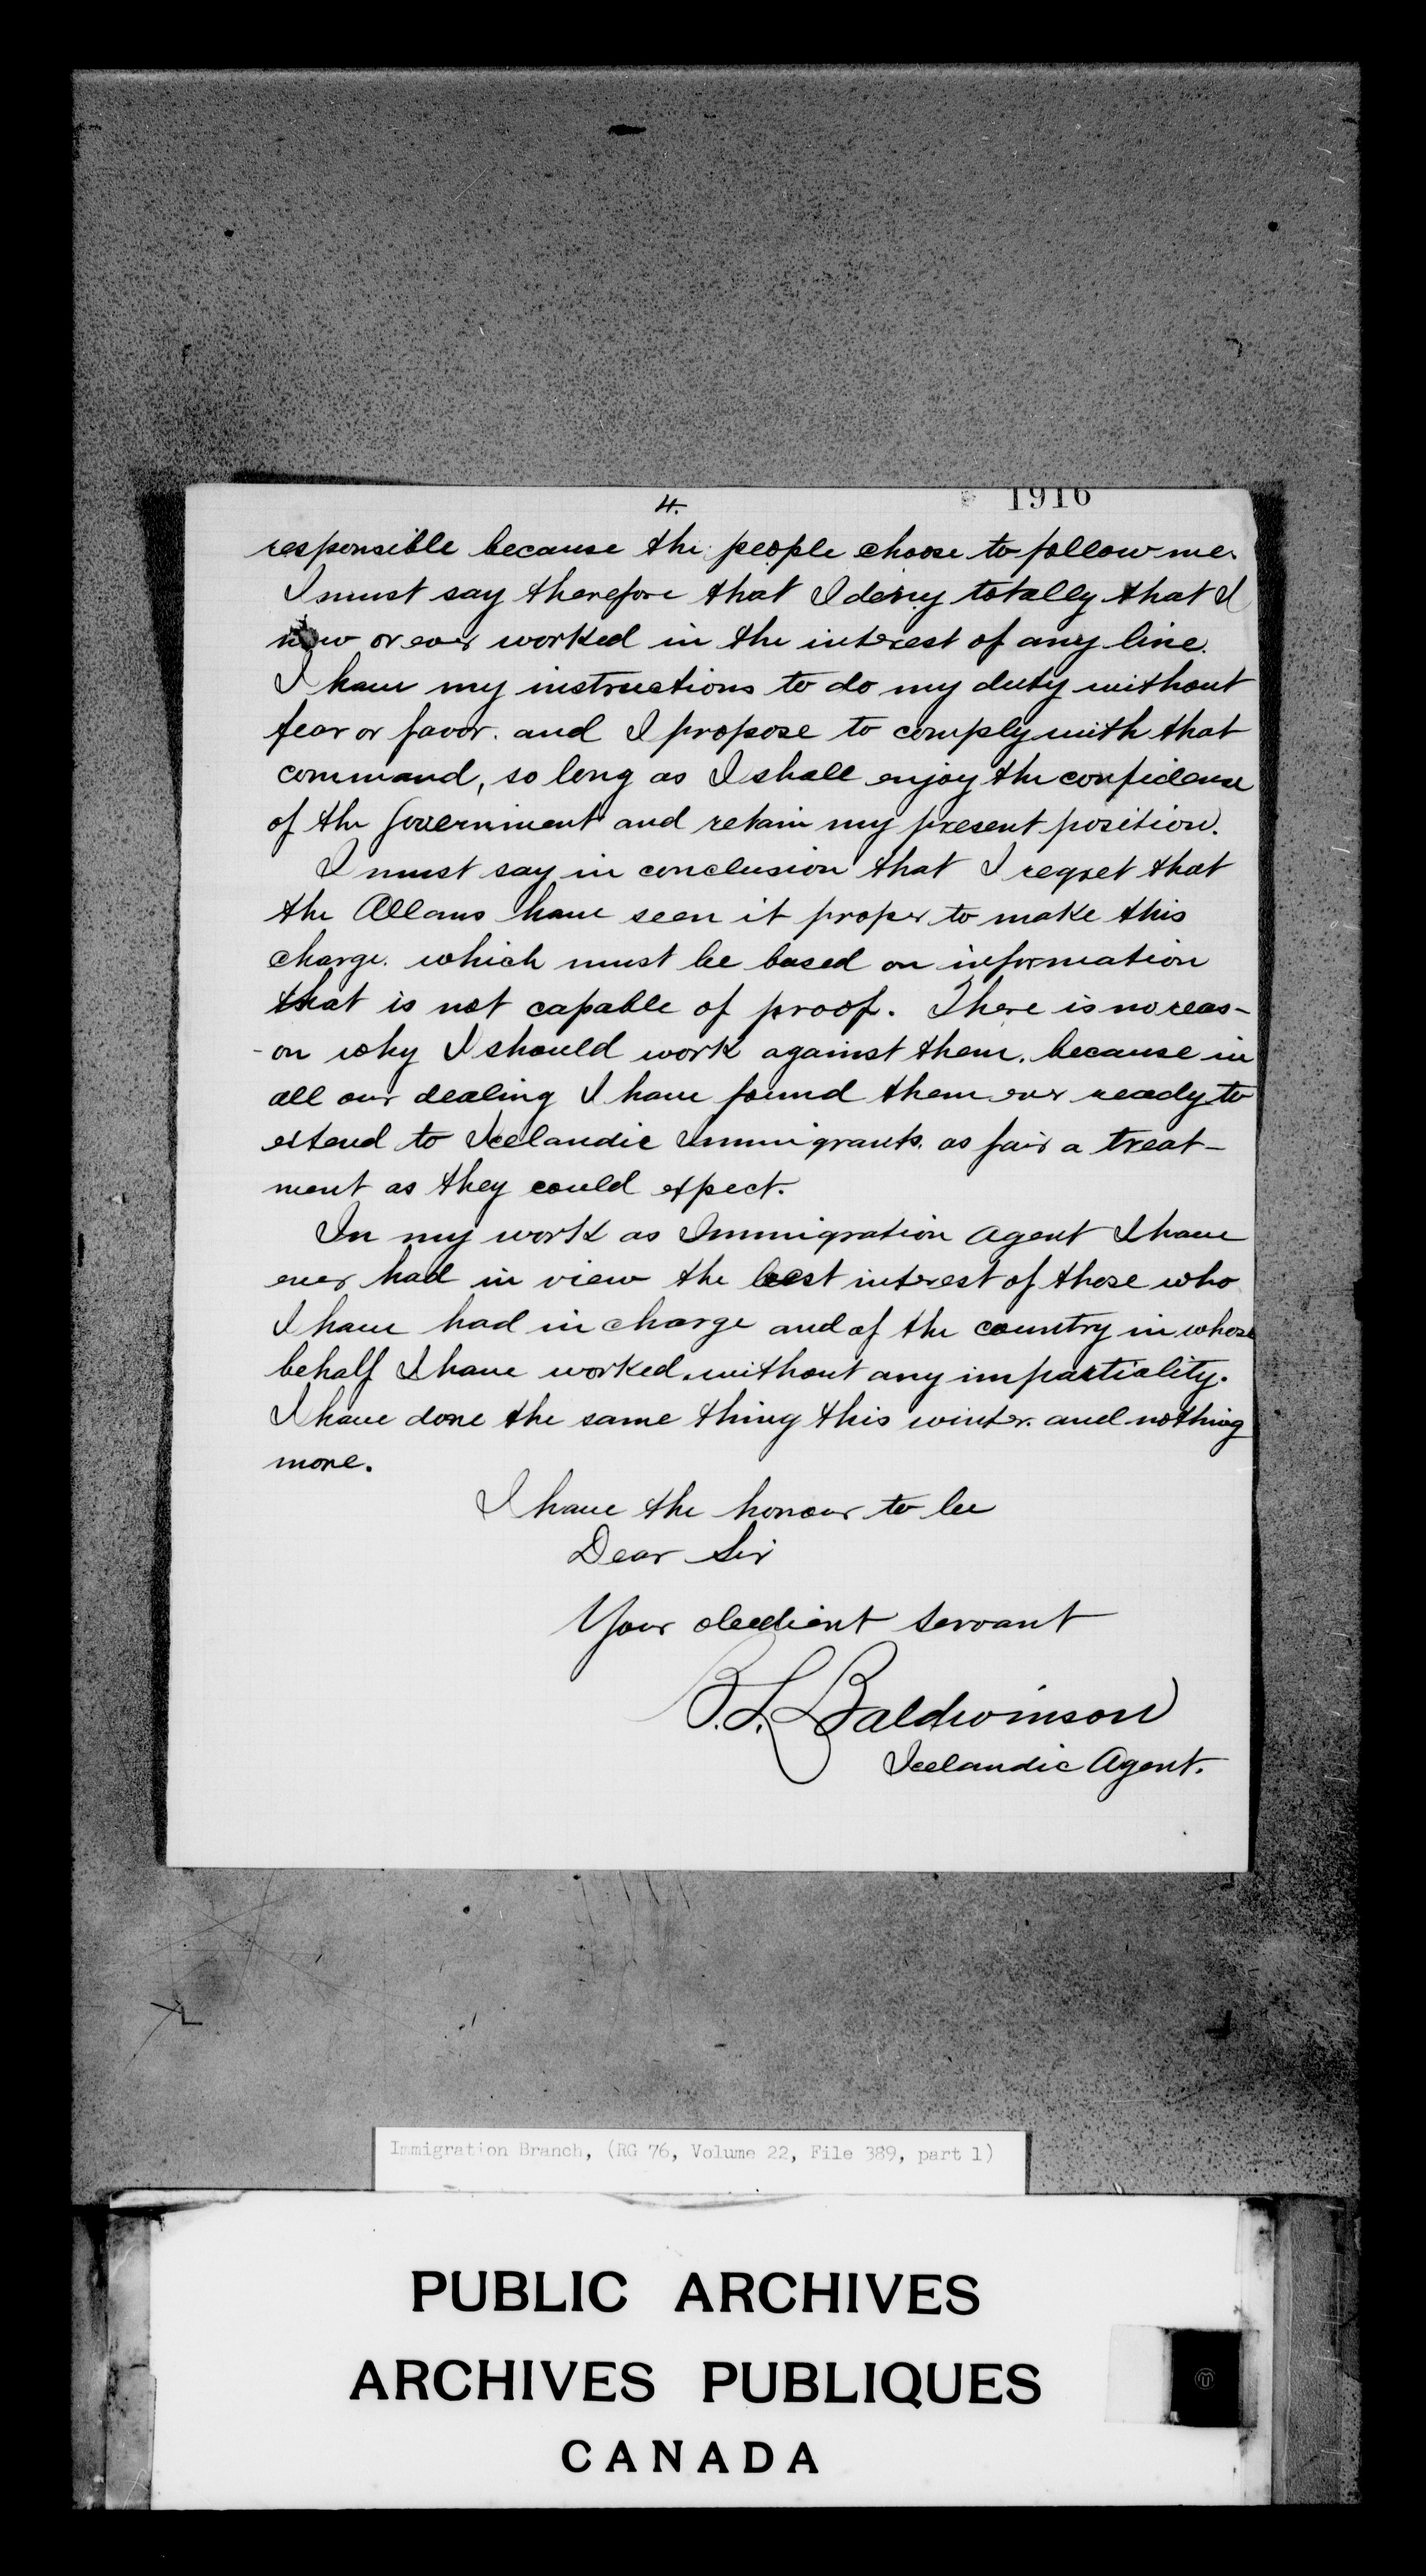 4.
1916
responsible because the people choose to follow me.
I must say therefore that I deny totally that I
now or ever worked in the interest of any line.
I have my instructions to do my duty without
fear or favor. and I propose to comply with that
command, so long as I shall enjoy the confidence
of the Government and retain my present position.
I must say in conclusion that I regret that
the Allans have seen it proper to make this
charge. which must be based on information
that is not capable of proof. There is no reas-
-on why I should work against them, because in
all our dealing I have found them ever ready to
extend to Icelandic Immigrants. as fair a treat-
ment as they could expect.
In my work as Immigration Agent I have
ever had in view the best interest of those who
I have had in charge and of the country in whose
behalf I have worked. without any impartiality.
I have done the same thing this winter. and nothing
more.
I have the honour to be
Dear Sir
Your obedient servant
B. L. Baldwinson
Icelandic Agent.
Immigration Branch, (RG 76, Volume 22, File 389, part 1)
PUBLIC ARCHIVES
ARCHIVES PUBLIQUES
CANADA